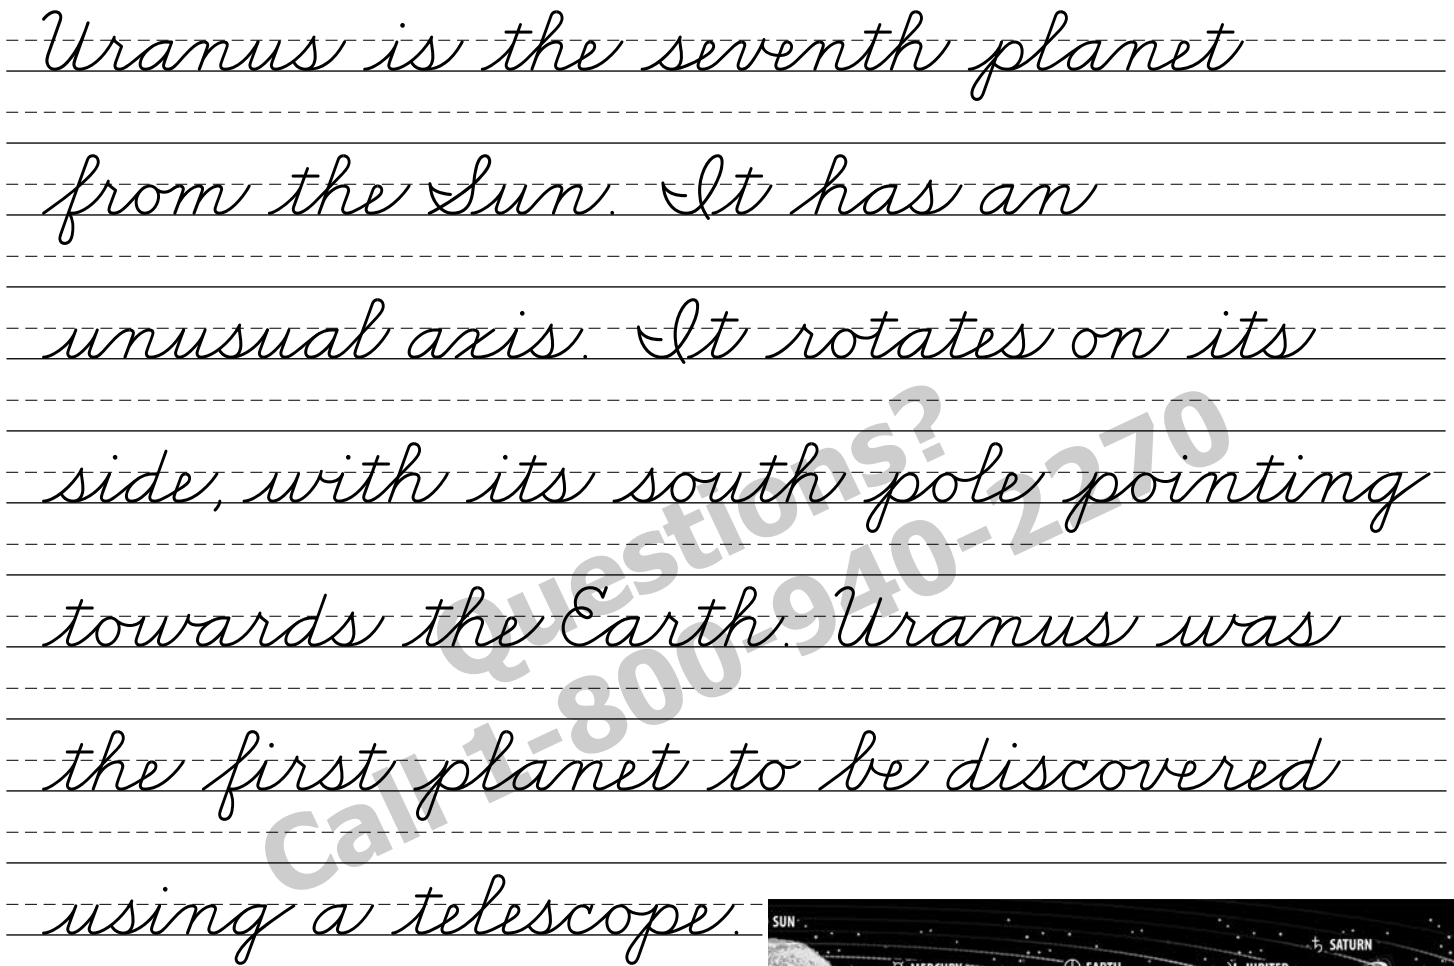 Uranus is the seventh planet
from the Sun. It has an
unusual axis. It rotates on its
side, with its south pole pointing
towards the Earth. Uranus was
the first planet to be discovered
using a telescope.
Questions?
Call 1-800-940-2270
SUN
SATURN
MERCURY
EARTH
JUPITER